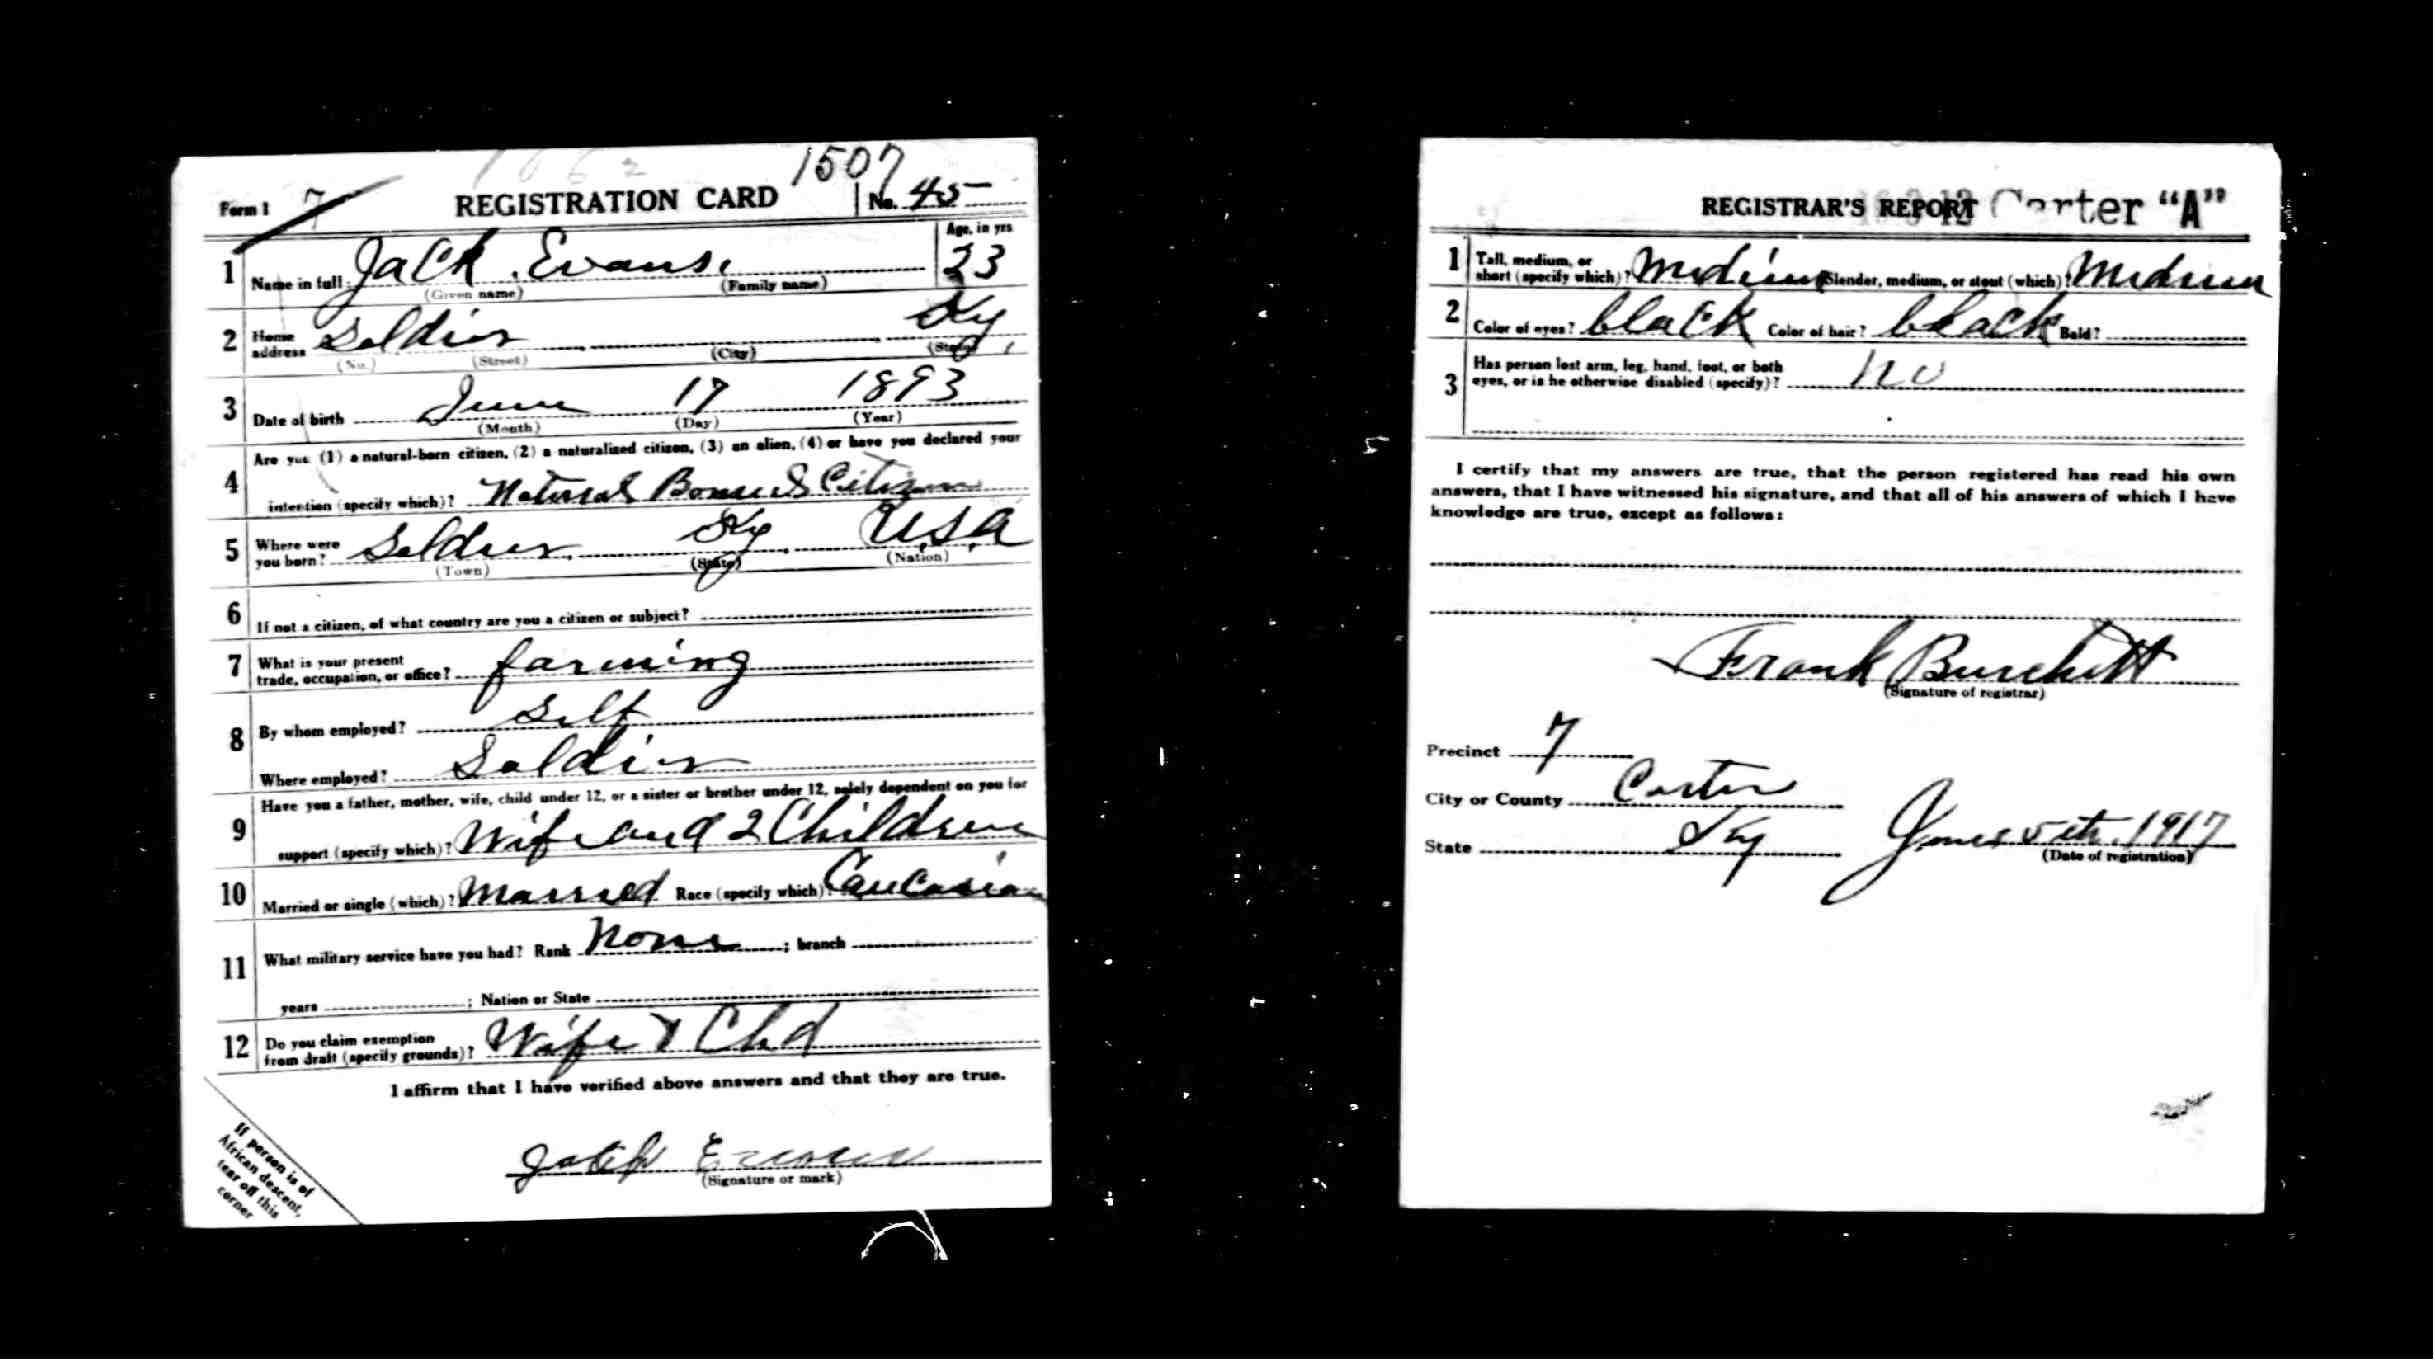 1507
Form 1 7 REGISTRATION CARD No. 45
Age, in yrs
1 Name in full Jack Evans. 23
(Given name) (Family name)
2 Home address Soldier Ky.
(No.) (Street) (City) (State)
3 Date of birth June 17 1893
(Month) (Day) (Year)
Are you (1) a natural-born citizen, (2) a naturalized citizen, (3) an alien, (4) or have you declared your
4 intention (specify which)? Natural Citizen
5 Where were you born? Soldier Ky U.S.A
(Town) (State) (Nation)
6 If not a citizen, of what country are you a citizen or subject?
7 What is your present
trade, occupation, or office? farming
8 By whom employed? Self
Where employed? Soldier
Have you a father, mother, wife, child under 12, or a sister or brother under 12, solely dependent on you for
9 support (specify which)? Wife and 2 Children
10 Married or single (which)? Married Race (specify which)? Caucasian
11 What military service have you had? Rank None ; branch
years ; Nation or State
12 Do you claim exemption
from draft (specify grounds)? Wife & Chd
I affirm that I have verified above answers and that they are true.
Evans
(Signature or mark)
If person is of
African descent,
tear off this
corner
REGISTRAR'S REPORT Carter "A"
1 Tall, medium, or
short (specify which)? Medium Slender, medium, or stout (which)? Medium
2 Color of eyes? black Color of hair? black Bald?
3 Has person lost arm, leg, hand, foot, or both
eyes, or is he otherwise disabled (specify)? no
I certify that my answers are true, that the person registered has read his own
answers, that I have witnessed his signature, and that all of his answers of which I have
knowledge are true, except as follows:
Frank Burchett
(Signature of registrar)
Precinct 7
City or County Carter
State Ky June 5th. 1917
(Date of registration)